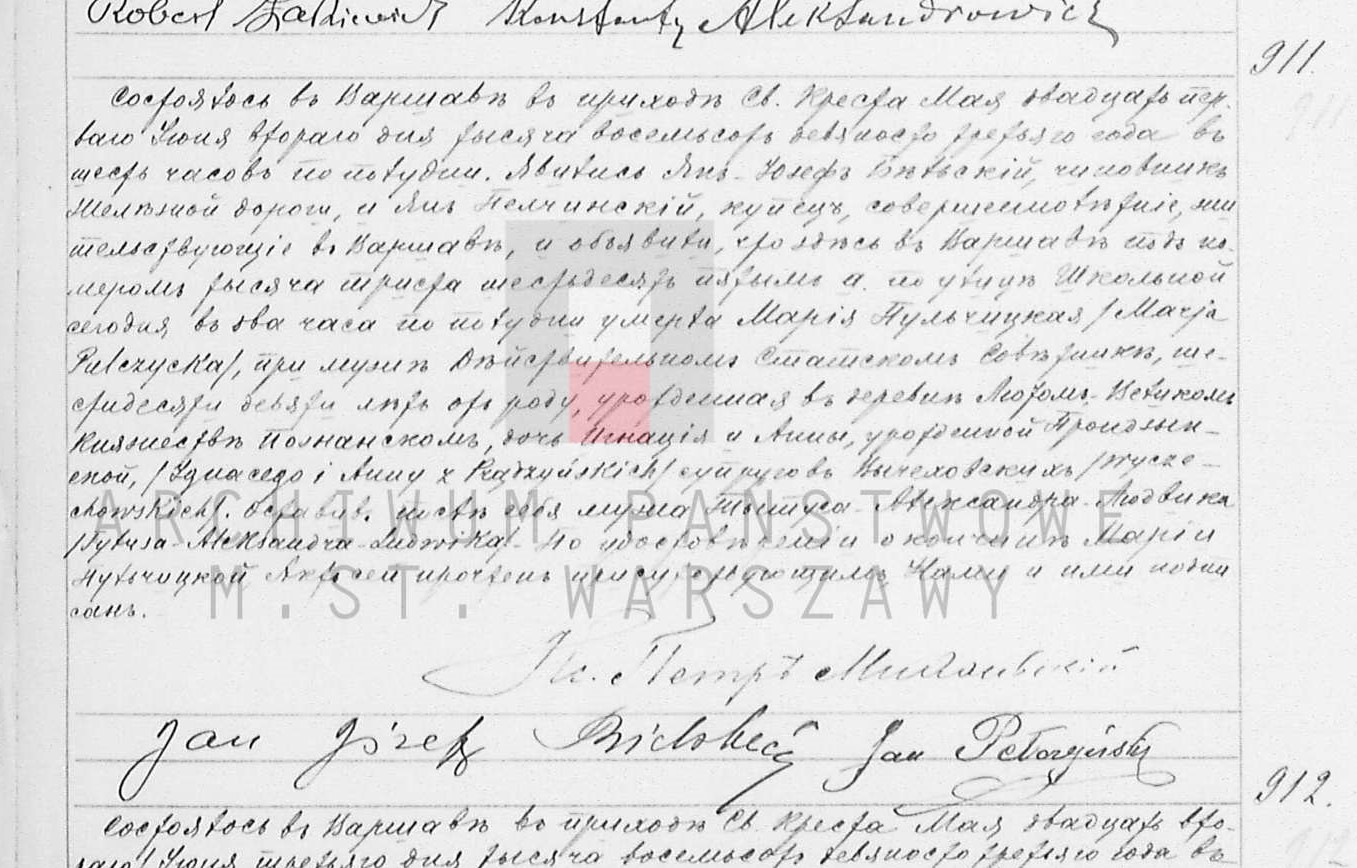 Robert Konstanty Aleksandrowicz
911.
Состоялось въ Варшавѣ въ приходѣ Св. Креста Мая двадцать пер-
ваго Іюня втораго дня тысяча восемьсотъ девяносто третьяго года въ
шесть часовъ по полудни. Явились Янъ-Юзефъ чиновникъ
желѣзной дороги, и Янъ Пелчинскій, купецъ, совершеннолѣтніе, жи
тельствующіе въ Варшавѣ, и объявили, что здѣсь въ Варшавѣ подъ но-
меромъ тысяча триста шестьдесятъ пятымъ а. по улицѣ Школьной
сегодня въ два часа по полудни умерла Марія Пульчицкая /Marja
Pulczycka/, при мужѣ Дѣйствительномъ Статскомъ Совѣтникѣ, ше-
стидесяти девяти лѣтъ отъ роду, урожденная въ деревнѣ Великомъ
Княжествѣ Познанскомъ, дочь Игнація и Анны, урожденной Прондзын-
ской, /Ignacego i Anny z Prądzyńskich/ супруговъ Вычеховскихъ /Wycze-
chowskich/. Оставивъ послѣ себя мужа Тытуса-Александра-Людвика
/Tytusa-Aleksandra-Ludwika/. По удостовѣреніи о кончинѣ Маріи
Пульчицкой Актъ сей прочтенъ присутствующимъ Нами и ими подпи
санъ.
ARCHIWUM PAŃSTWOWE
M.ST. WARSZAWY
Кс. Петръ
Jan Józef Jan Pełczyński
912.
Состоялось въ Варшавѣ въ приходѣ Св. Креста Мая двадцать вто-
раго/Іюня третьяго дня тысяча восемьсотъ девяносто третьяго года въ